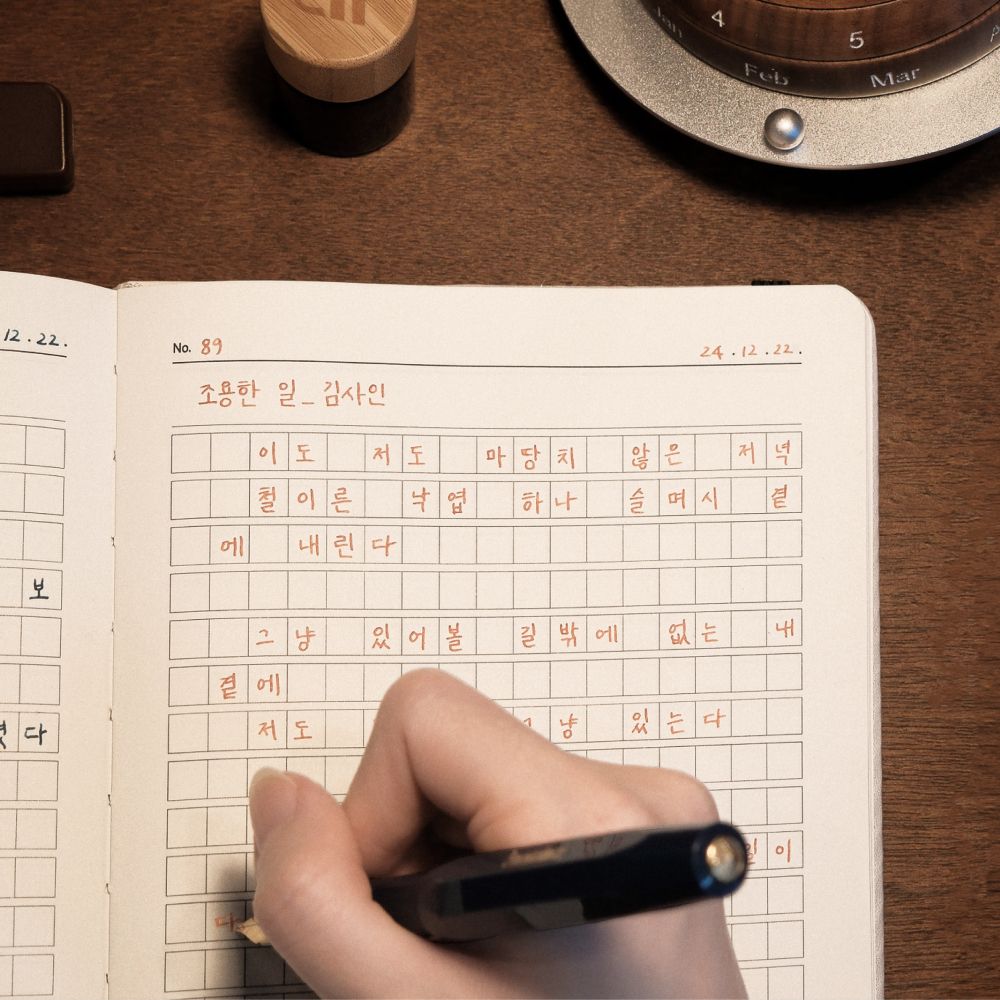 Feb
Mar
4
5
12.22.
보
다
No. 89
24.12.22.
조용한 일_김사인
이도 저도 마땅치 않은 저녁
철이른 낙엽 하나 슬며시 곁
에 내린다
그냥 있어볼 길밖에 없는 내
곁에
저도 있는다
이